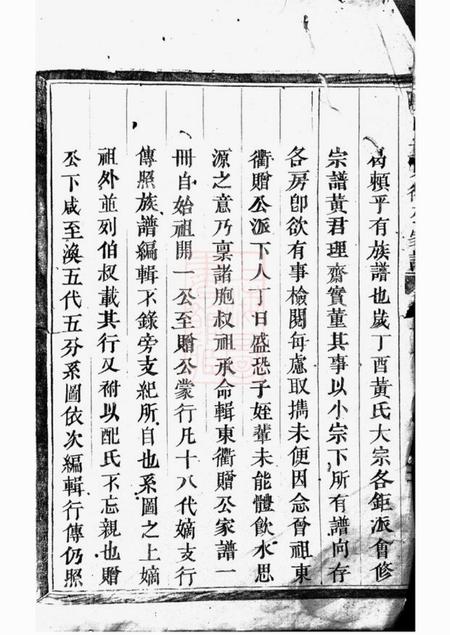 曷賴乎有族譜也歲丁酉黃氏大宗各鉅派會修
宗譜黃君理齋實董其事以小宗下所有譜向存
各房卽欲有事檢閱每慮取攜未便因念晉祖東
衢贈公派下人丁日盛恐子姪輩未能體飲水思
源之意乃稟諸胞叔祖承命輯東衢贈公家譜一
冊自始祖開一公至贈公蒙行凡十八代嫡支行
傳照族譜編輯不錄旁支紀所自也系圖之上嫡
祖外並列伯叔載其行又祔以配氏不忘親也贈
公下咸至渙五代五分系圖依次編輯行傳仍照